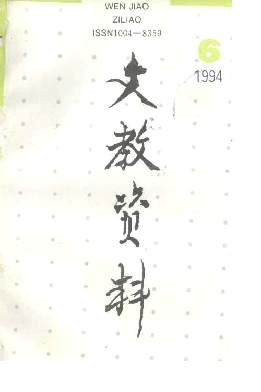 WEN JIAO
ZILIAO
ISSN1004-8359
6
1994
文教资料